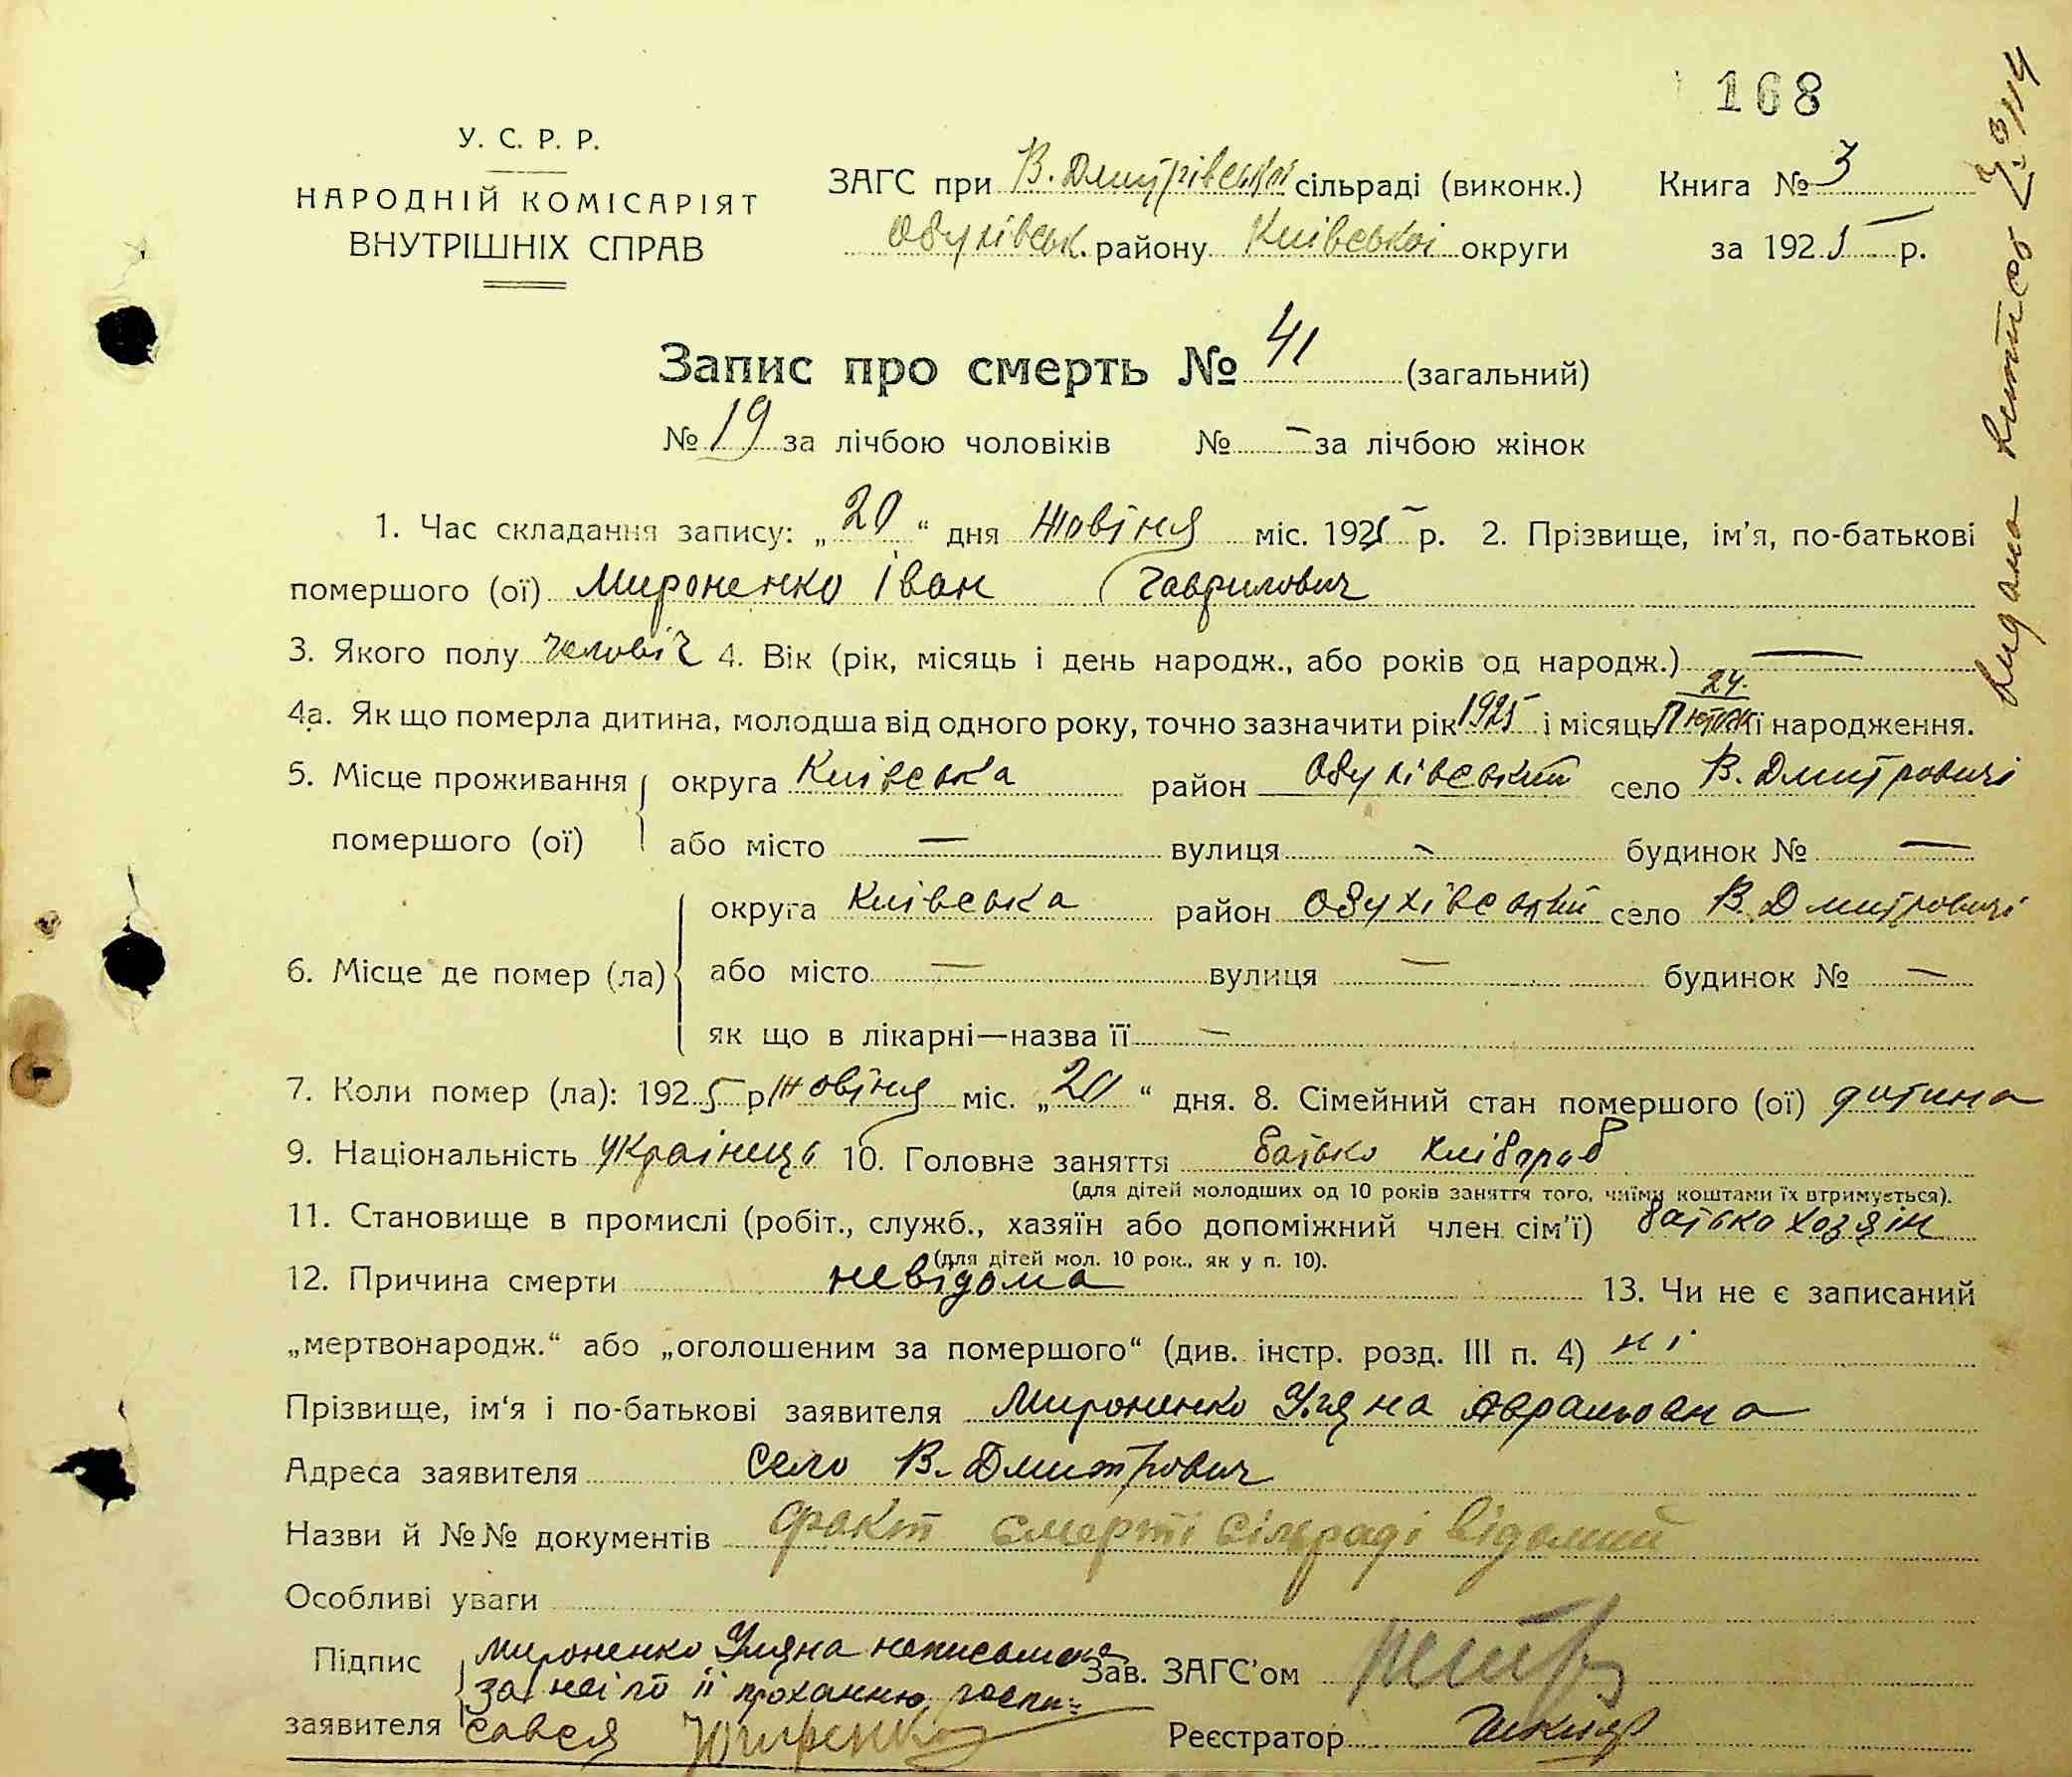 168
У. С. Р. Р.
НАРОДНІЙ КОМІСАРІЯТ
ВНУТРІШНІХ СПРАВ
ЗАГС при В. Дмитрівській сільраді (виконк.)
Обухівськ. району Київської округи
Книга № 3
за 1925 р.
Запис про смерть № 41 (загальний)
№ 19 за лічбою чоловіків № — за лічбою жінок
1. Час складання запису: „20“ дня Жовтня міс. 1925 р. 2. Прізвище, ім’я, по-батькові
помершого (ої) Мироненко Іван Гаврилович
3. Якого полу чоловіч 4. Вік (рік, місяць і день народж., або років од народж.) —
4а. Як що померла дитина, молодша від одного року, точно зазначити рік 1925 і місяць 24 її народження.
5. Місце проживання помершого (ої) округа Київська район Обухівський село В. Дмитровичі
або місто — вулиця — будинок № —
6. Місце де помер (ла) округа Київська район Обухівський село В. Дмитровичі
або місто — вулиця — будинок № —
як що в лікарні—назва її —
7. Коли помер (ла): 1925 р. Жовтня міс. „20“ дня. 8. Сімейний стан помершого (ої) дитина
9. Національність Українець 10. Головне заняття батько хлібороб
(для дітей молодших од 10 років заняття того, чиїми коштами їх втримується).
11. Становище в промислі (робіт., служб., хазяїн або допоміжний член сім’ї) батько хозяін
(для дітей мол. 10 рок., як у п. 10).
12. Причина смерти невідома 13. Чи не є записаний
„мертвонародж.“ або „оголошеним за помершого“ (див. інстр. розд. III п. 4) ні
Прізвище, ім‘я і по-батькові заявителя Мироненко Уляна
Адреса заявителя село В. Дмитрович
Назви й №№ документів факт смерті сільраді відомий
Особливі уваги
Підпис заявителя Мироненко Уляна неписьмена
за неї по її проханню роспи=
сався
Зав. ЗАГС’ом
Реєстратор
видана